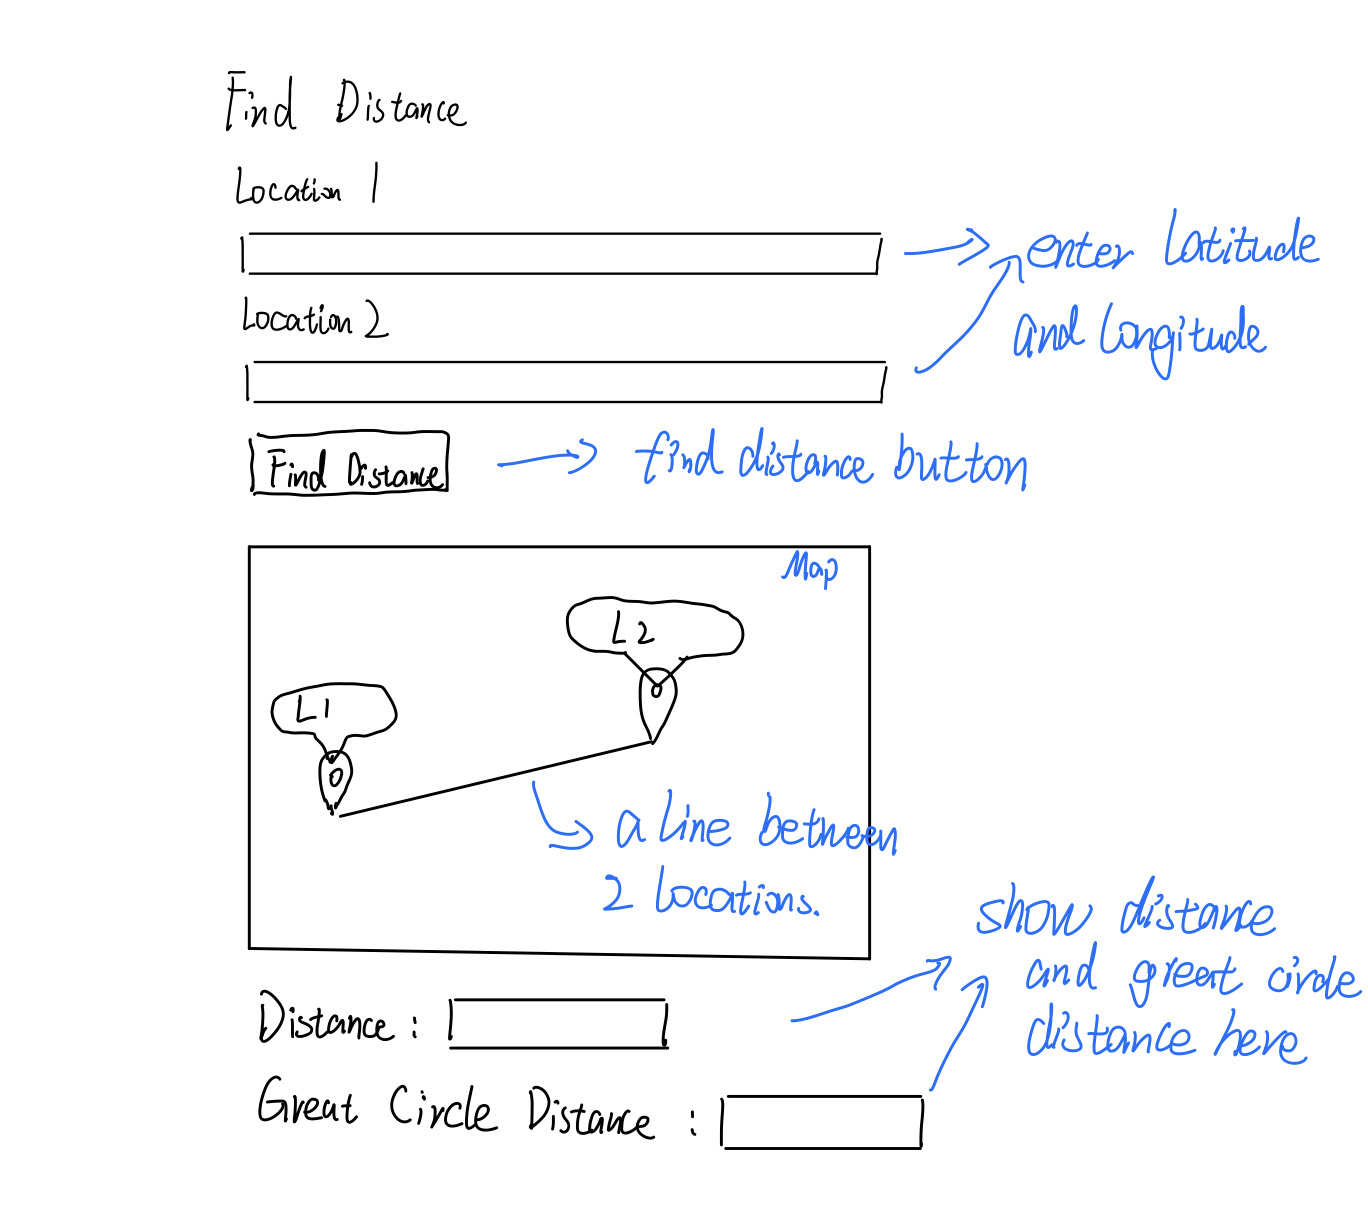 Find Distance
Location 1
enter latitude
and longitude
Location 2
Find Distance
find distance button
Map
L2
L1
a line between
2 locations.
show distance
and great circle
distance here
Distance :
Great Circle Distance :